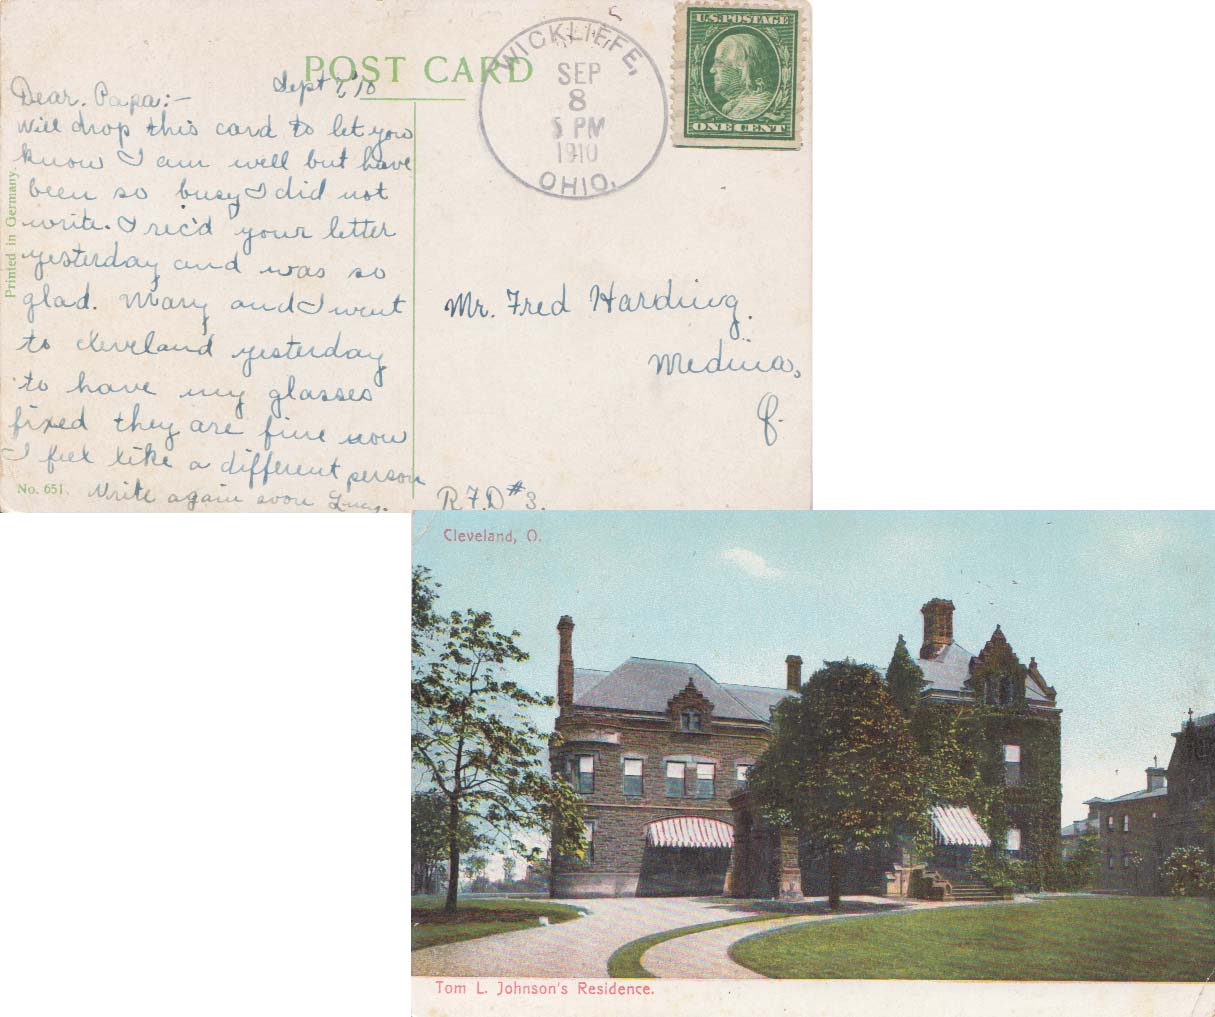 POST CARD
WICKLIFFE,
SEP
8
5 PM
1910
OHIO.
U.S. POSTAGE
ONE CENT
Sept 7, '10
Dear. Papa:-
Will drop this card to let you
know I am well but have
been so busy I did not
write. I rec'd your letter
yesterday and was so
glad. Mary and I went
to Cleveland yesterday
to have my glasses
fixed they are fine now
I feel like a different person
Write again soon Lucy.
Printed in Germany.
No. 651.
Mr. Fred Harding.
Medina,
O.
R.F.D #3.
Cleveland, O.
Tom L. Johnson's Residence.